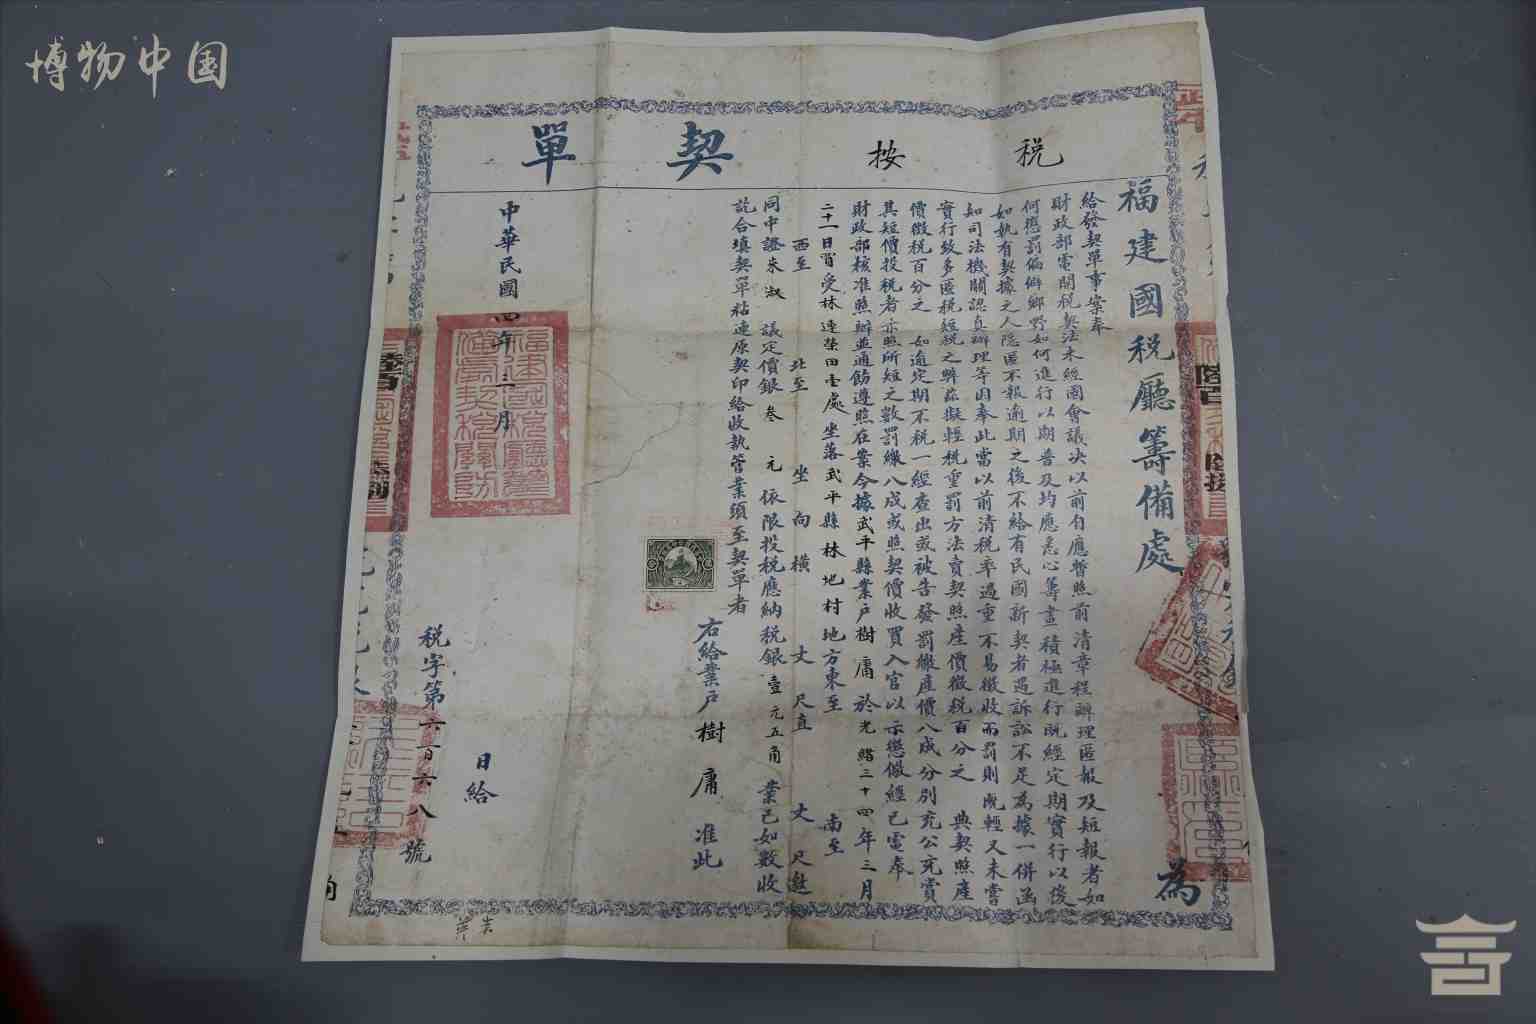 博物中国
税按契單
福建國税廳籌備處為
給發契單事案奉
財政部電開税契法未經國會議决以前自應暫照前清章程辦理匿報及短報者如
何懲罰偏僻鄉野如何進行以期普及均應悉心籌畫積極進行既經定期實行以後
如執有契據之人隐匿不報逾期之後不給有民國新契者遇訴訟不足為據一併函
知司法機關認真辦理等因奉此當以前清税率過重不易徵收而罰則既輕又未嘗
實行致多匿税短税之弊茲擬輕税重罰方法賣契照產價徵税百分之 典契照產
價徵税百分之 如逾定期不税一經查出或被告發罰繳產價八成分别充公充賞
其短價投税者亦照所短之數罰繳八成或照契價收買入官以示懲儆經已電奉
財政部核准照辦並通飭遵照在案今據武平縣業户樹庸於光緒三十四年三月
二十一日買受林連榮田壹處坐落武平縣林地村地方東至 南至
西至 北至 坐向橫 丈 尺直 丈 尺憑
同中證朱淑 議定價銀叁 元依限投税應納税銀壹元五角 業已如數收
訖合填契單粘連原契印給收執管業須至契單者
右給業户樹庸准此
中華民國四年三月 日給
税字第六百六八號